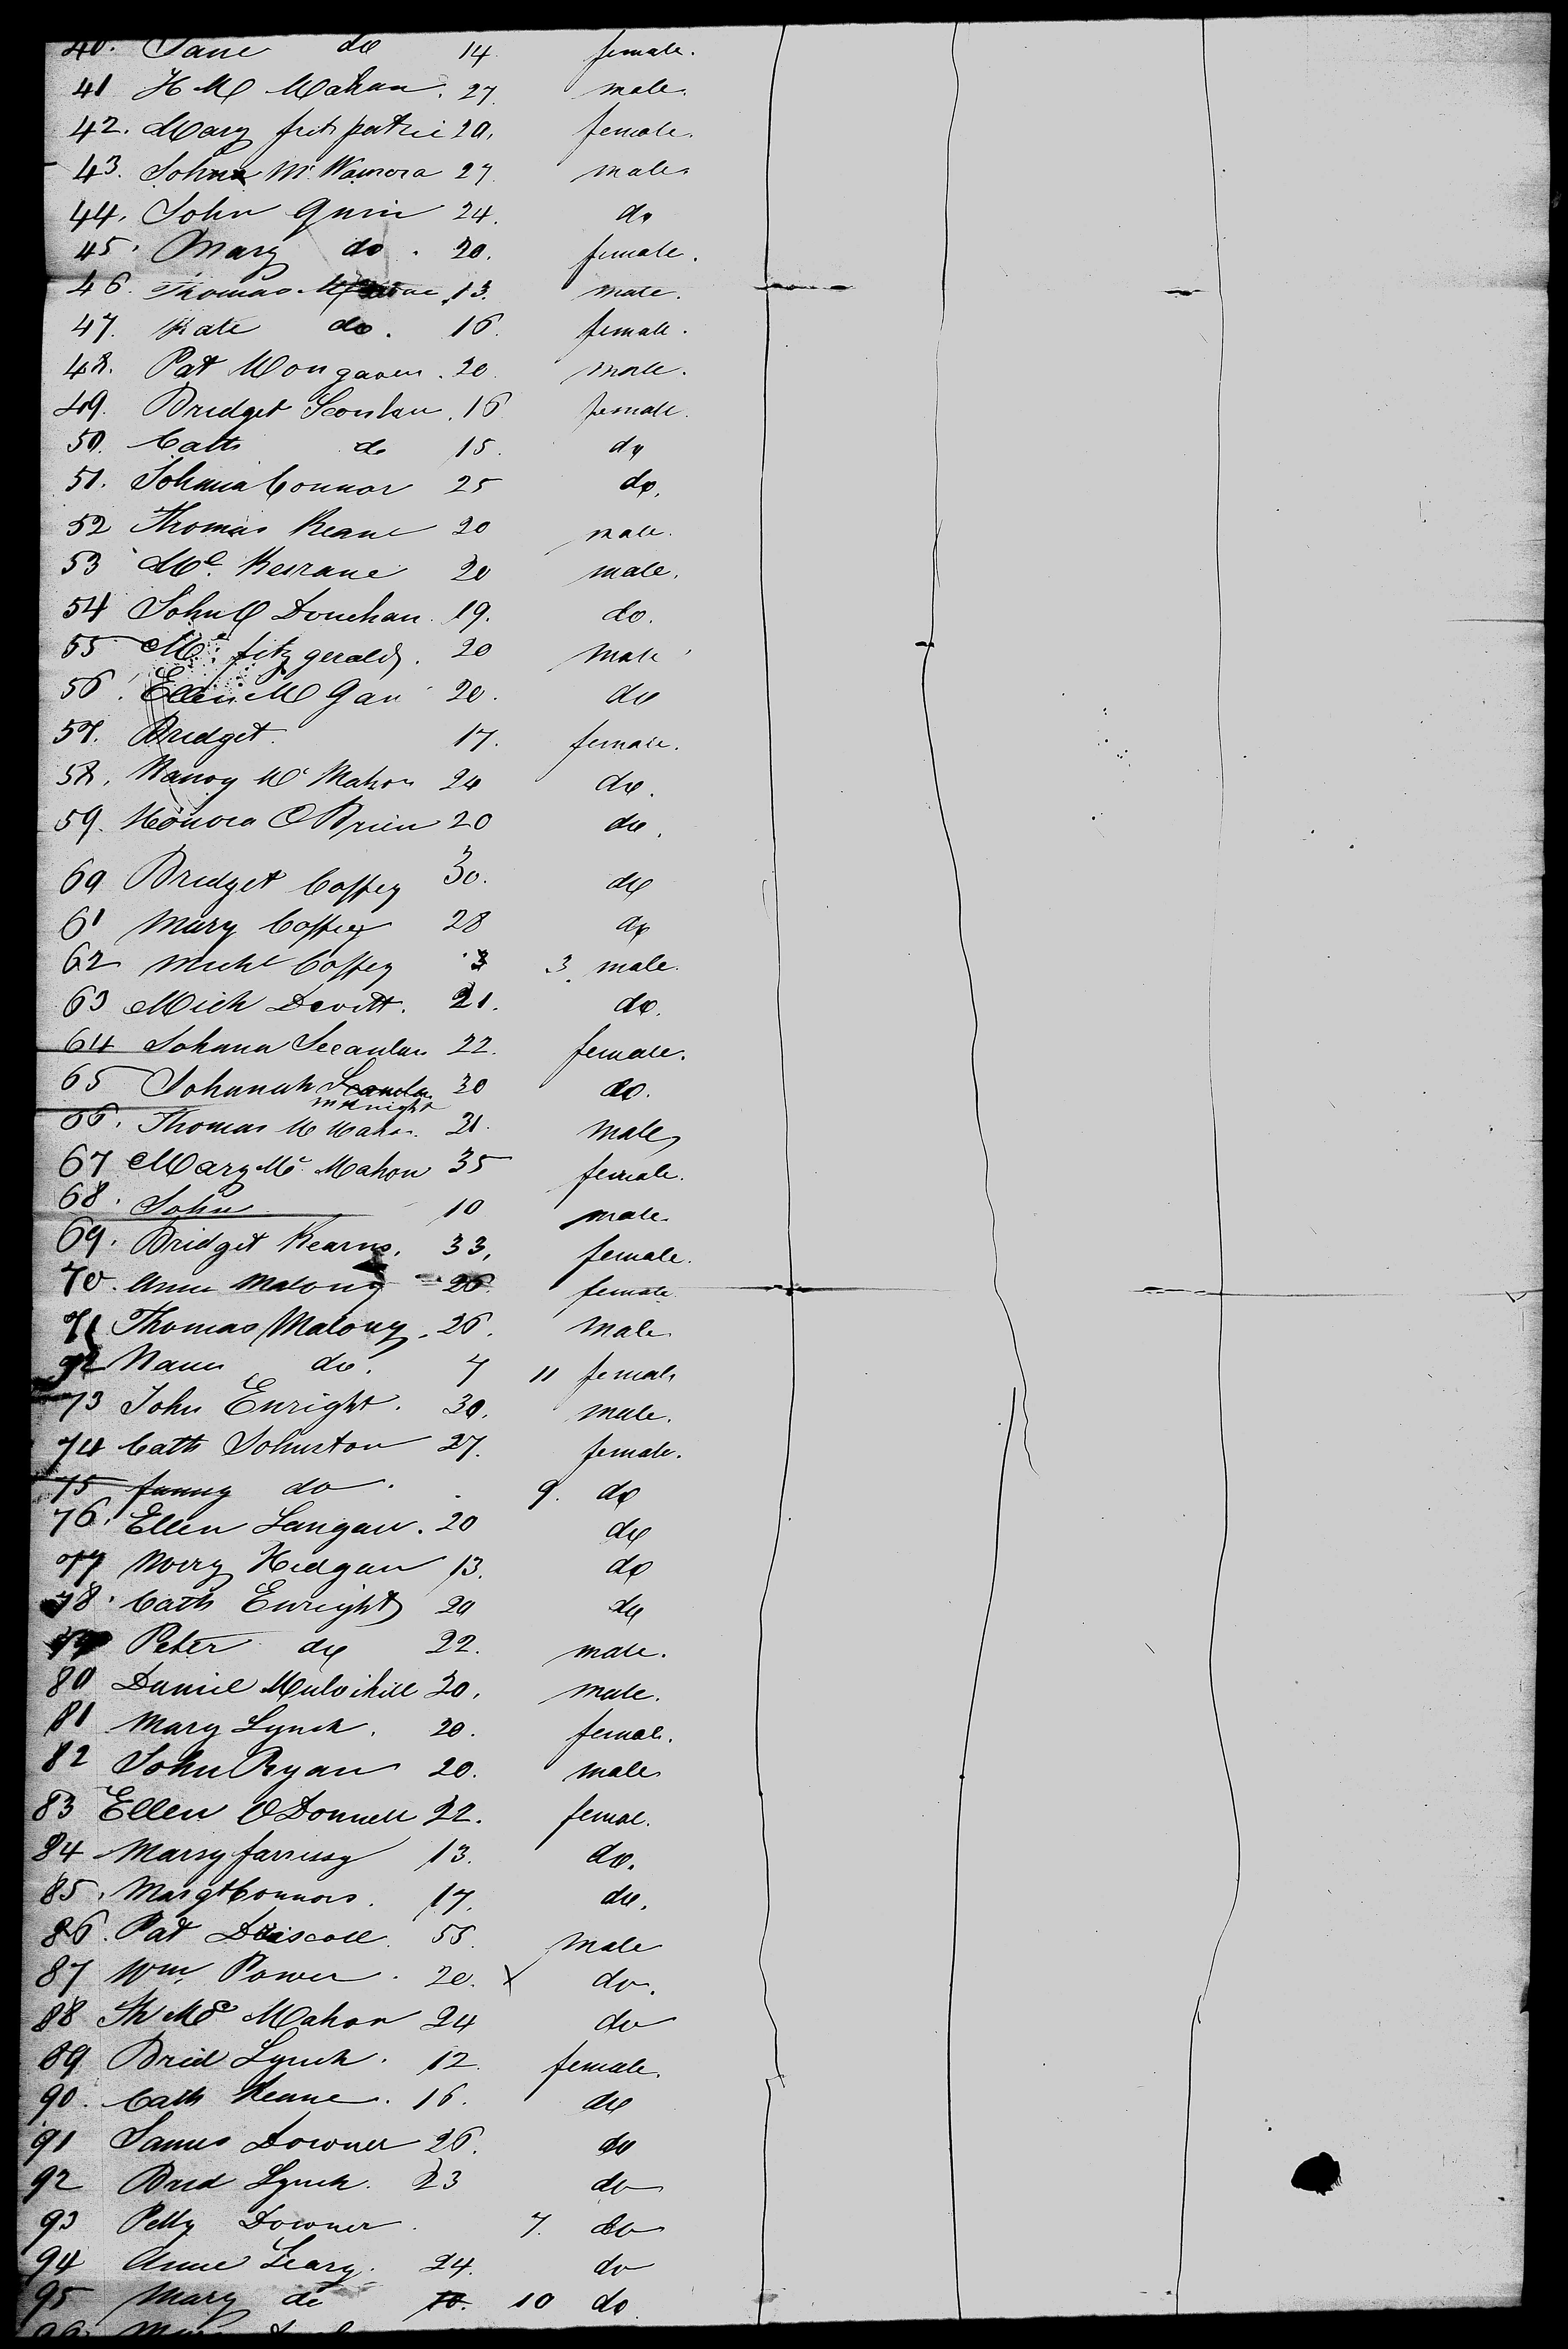 40. Jane do 14 female.
41 H M Mahan. 27. male.
42. Mary fitzpatric 20. female.
43. John Mc 27 male
44. John Quin 24. do
45. Mary do. 20. female.
46. Thomas 13. male.
47. Kate do. 16. female.
48. Pat Mongaven. 20. male.
49. Bridget Scanlan. 16 female.
50. Cath do 15. do
51. Johana Connor 25 do.
52 Thomas Keane 20 male.
53 Ml. Keirane 20 male.
54 John Donehan. 19. do.
55 Ml. fitzgerald. 20 Male
56. Ellen M Gan 20. do
57. Bridget 17. female.
58. Nancy Mc Mahon 24 do.
59. Honora O Brien 20 do.
60 Bridget Coffey 30. do
61 Mary Coffey 28 do
62 Michl Coffey 3 3. male.
63 Mich Devitt. 21. do.
64 Johana Scanlan 22. female.
65 Johanah Scanlan 30 do.
McKnight
66. Thomas M Mahon. 21. male
67 Mary Mc Mahon 35 female.
68. John 10 male.
69. Bridget Kearns. 33. female.
70. Anne Malony 26. female
71 Thomas Malony. 26. male.
72 do. 7 11 female
73 John Enright. 30. male.
74 Cath Johnston 27. female.
75 fanny do. 9. do
76. Ellen Langan. 20 do
77 Hedgan 13. do
78. Cath Enright 20 do
79 Peter do 22. male.
80 Daniel Mulvihill 20. male.
81 Mary Lynch. 20. female.
82 John Ryan 20. male
83 Ellen O Donnell 22. female.
84 Mary farrissy 13. do.
85. Margt Connors. 17. do.
86. Pat Driscoll. 55. male
87 Wm. Power. 20. X do.
88 Th Mc Mahon 24 do
89 Brid Lynch. 12. female.
90. Cath Keane. 16. do
91 James Downer 26. do
92 Brid Lynch. 23 do
93 Pelly Downer. 7. do
94 Anne Leary. 24. do
95 Mary do 10. 10 do